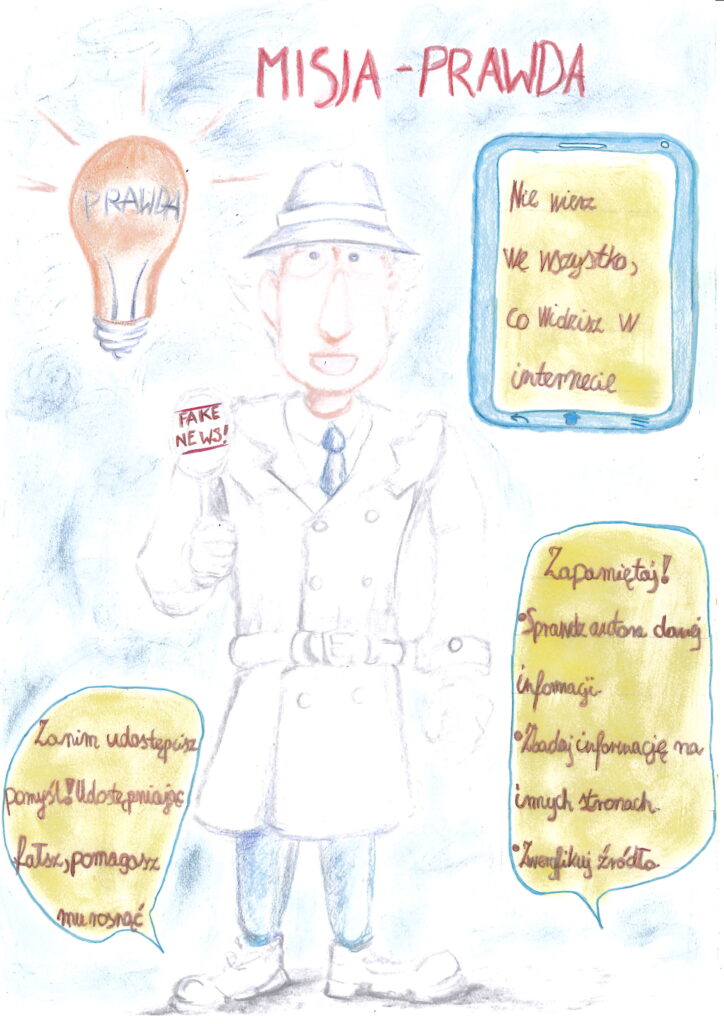 MISJA - PRAWDA
PRAWDA
Nie wierz
we wszystko,
co widzisz w
internecie
FAKE
NEWS!
Zapamiętaj!
•Sprawdź autora danej
informacji.
•Zbadaj informację na
innych stronach.
•Zweryfikuj źródło.
Zanim udostępnisz
pomyśl! Udostępniając
fałsz, pomagasz
mu rosnąć